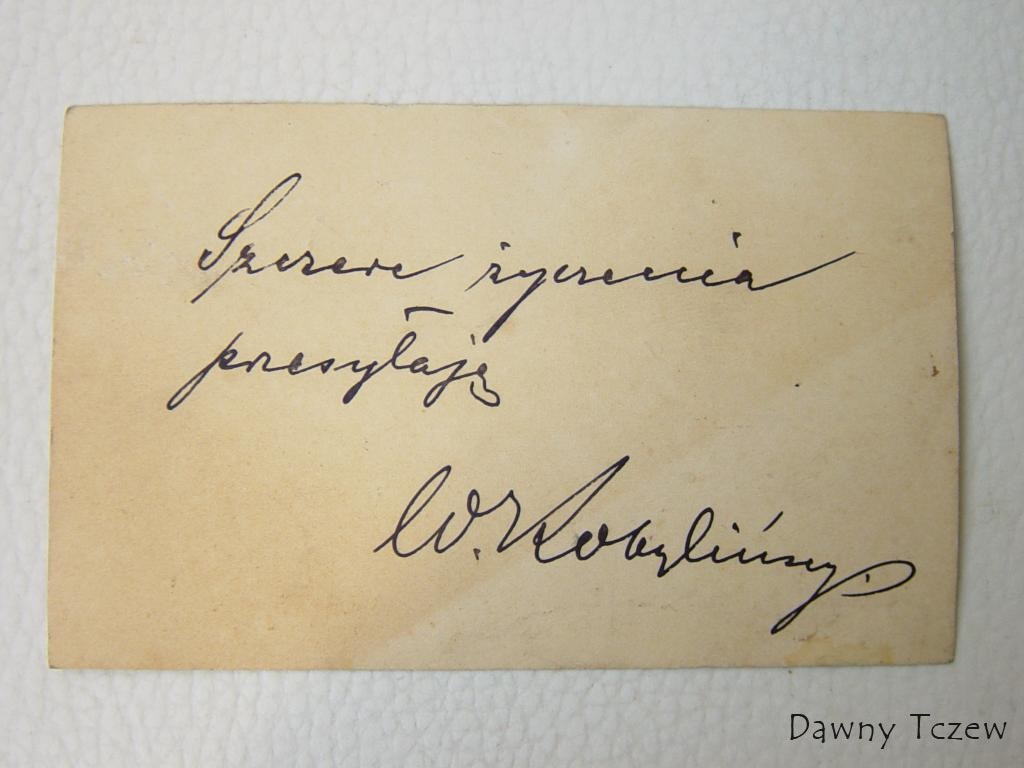 Szczere życzenia
przesyłają
W. Kobylińscy.
Dawny Tczew